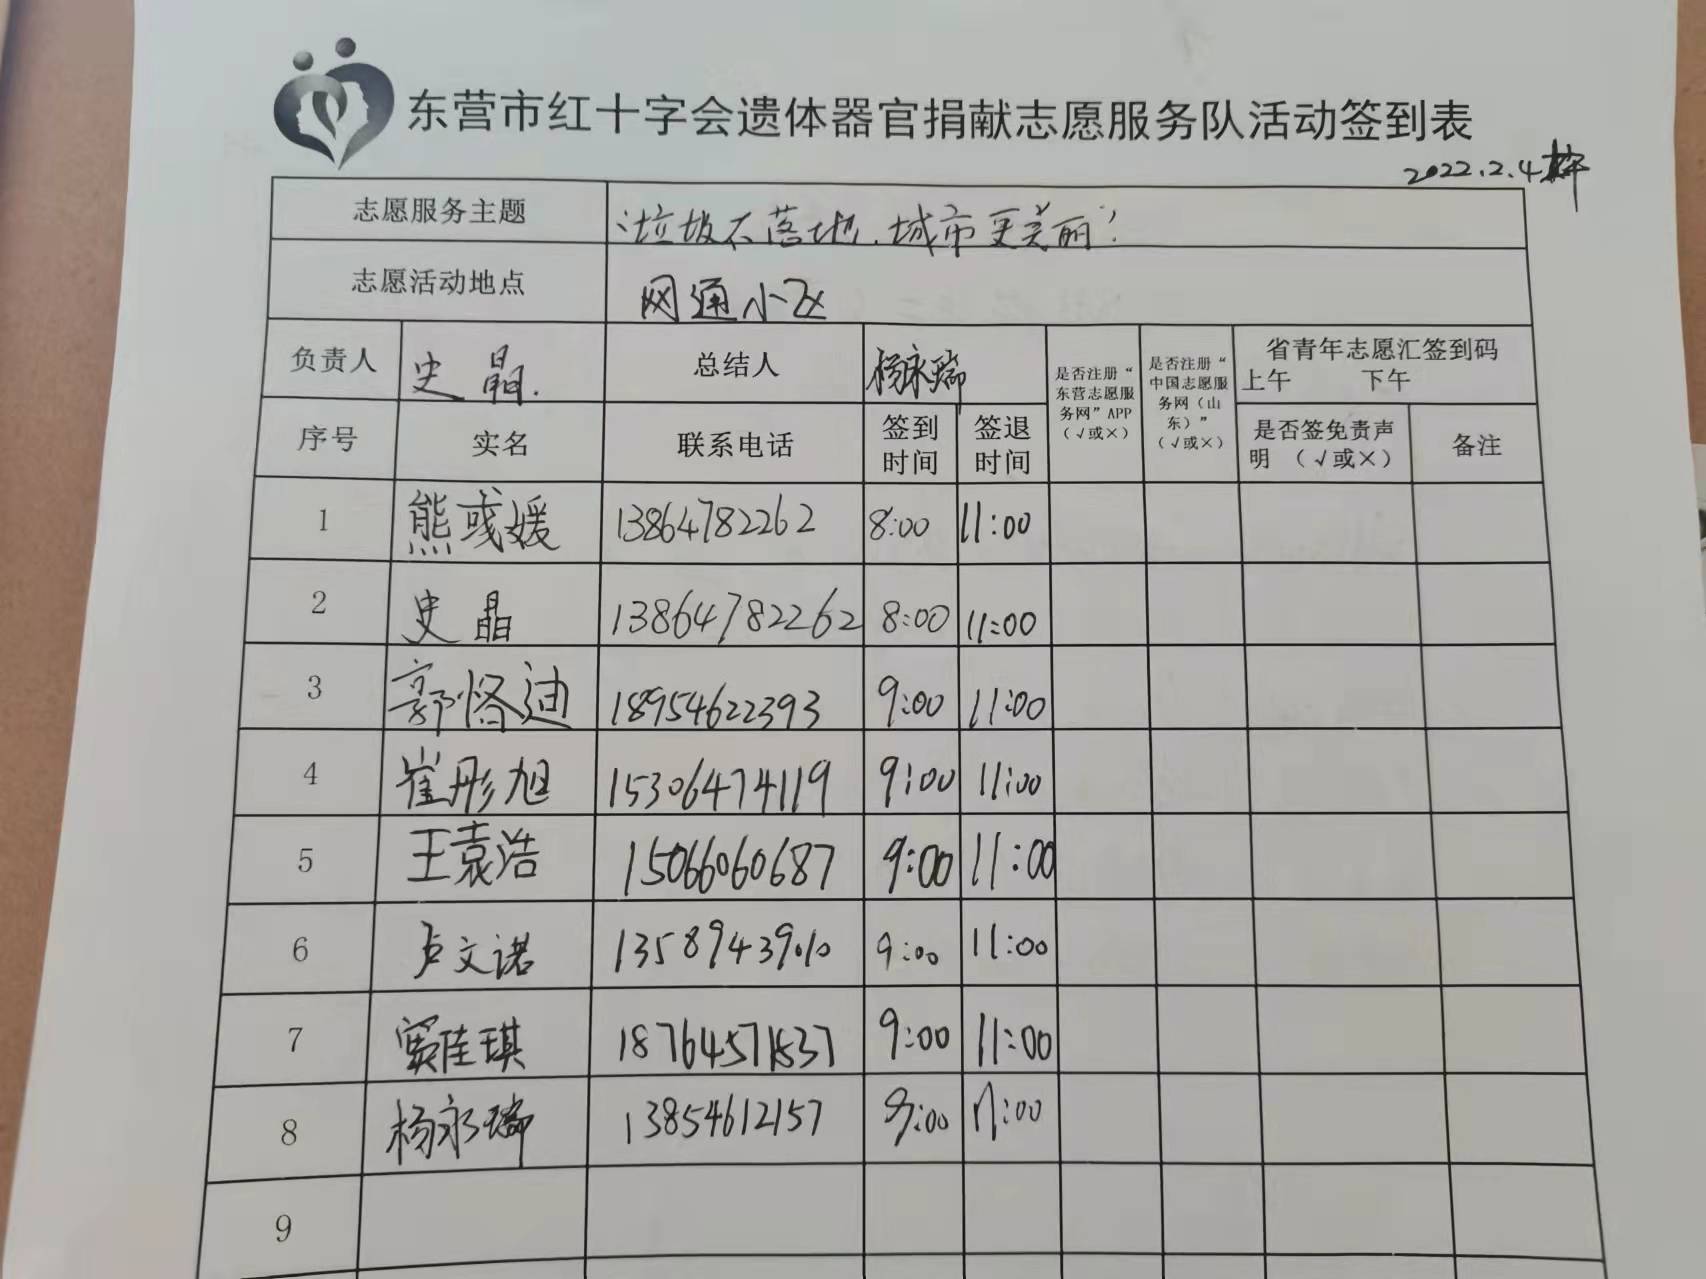 东营市红十字会遗体器官捐献志愿服务队活动签到表
2022.2.4
志愿服务主题 垃圾不落地,城市更美丽!
志愿活动地点 网通小区
负责人 史晶. 总结人 杨永瑞 是否注册“东营志愿服务网”APP(√或×) 是否注册“中国志愿服务网(山东)”(√或×) 省青年志愿汇签到码 上午 下午
序号 实名 联系电话 签到时间 签退时间 是否签免责声明 (√或×) 备注
1 熊彧媛 13864782262 8:00 11:00
2 史晶 13864782262 8:00 11:00
3 郭恪迪 18954622393 9:00 11:00
4 崔彤旭 15306474119 9:00 11:00
5 王袁浩 15066060687 9:00 11:00
6 卢文诺 13589439010 9:00 11:00
7 窦佳琪 18764571537 9:00 11:00
8 杨永瑞 13854612157 9:00 11:00
9